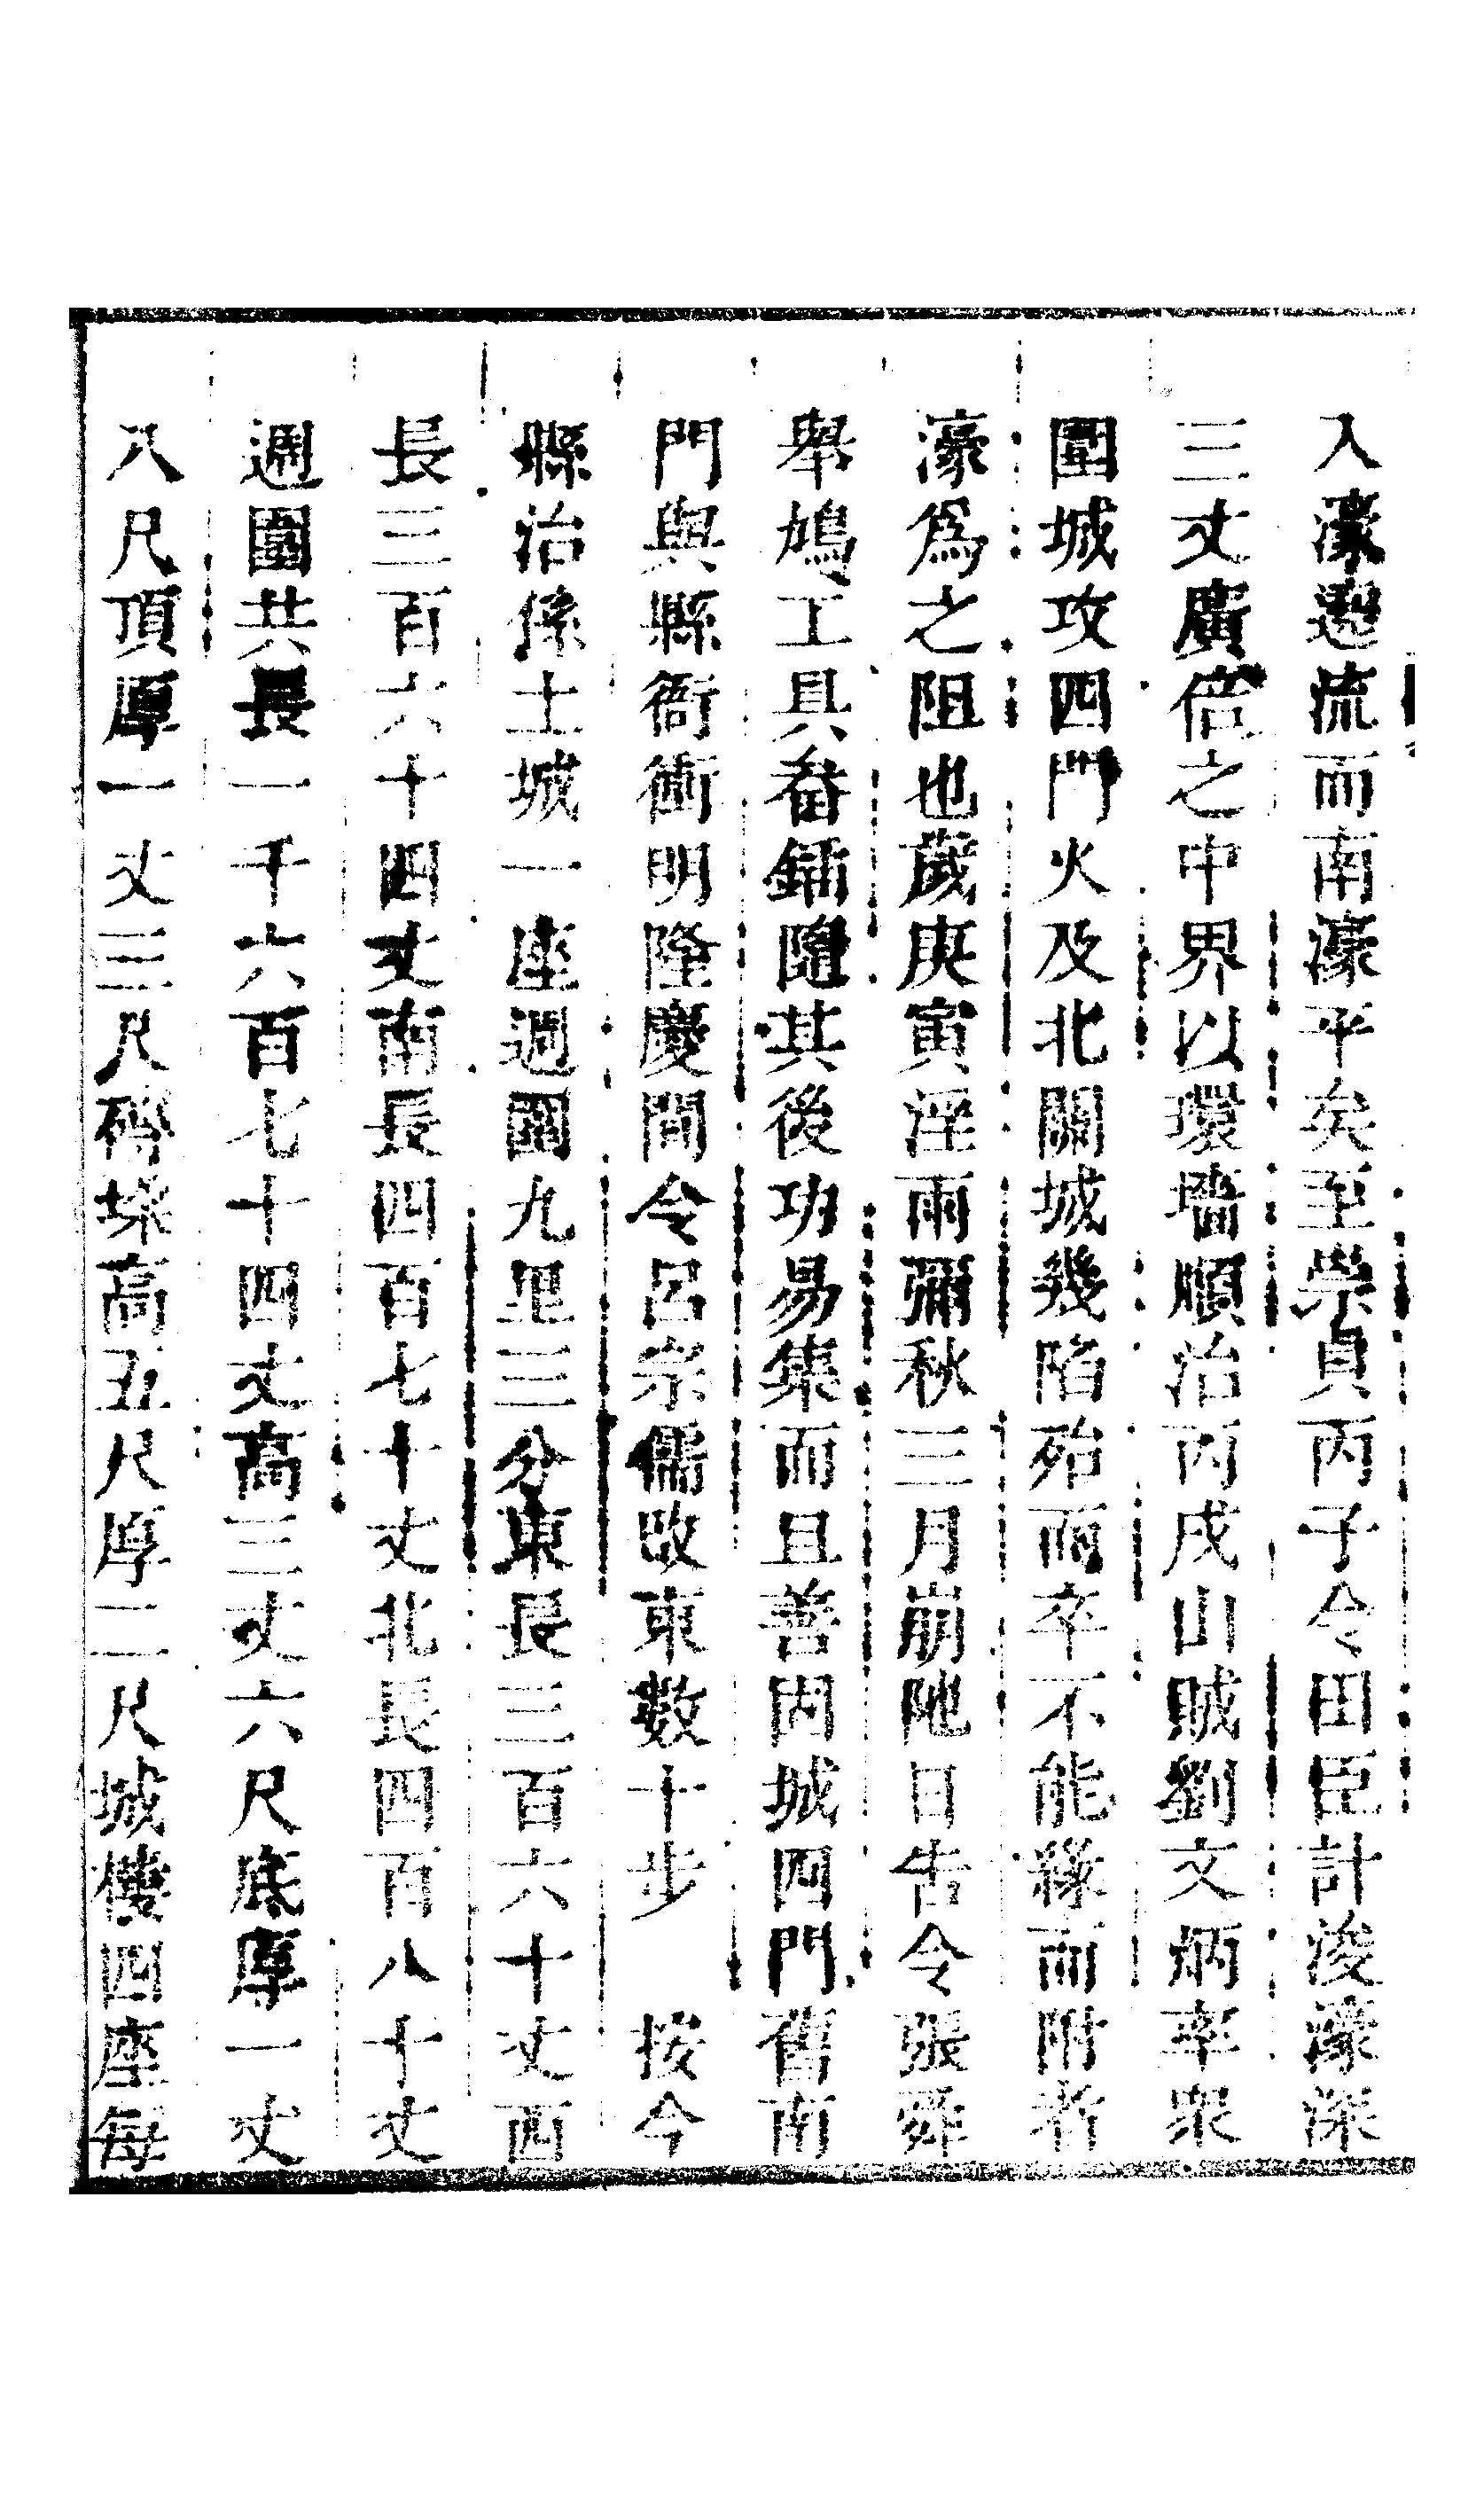 入濠遶流而南濠平矣至崇貞丙子令田臣計浚濠深
三丈廣倍之中界以環墻順治丙戌山賊劉文炳率衆
圍城攻四門火及北關城幾陷殆而卒不能緣而附者
濠爲之阻也歲庚寅淫雨彌秋三月崩阤日告令張舜
舉鳩工具畚鍤隨其後功易集而且善因城四門舊南
門與縣衙衝明隆慶間令呂宗儒改東數十步　按今
縣治係土城一座週圍九里三分東長三百六十丈西
長三百六十四丈南長四百七十丈北長四百八十丈
週圍共長一千六百七十四丈高三丈六尺底厚一丈
八尺頂厚一丈三尺磚垛高五尺厚二尺城樓四座每